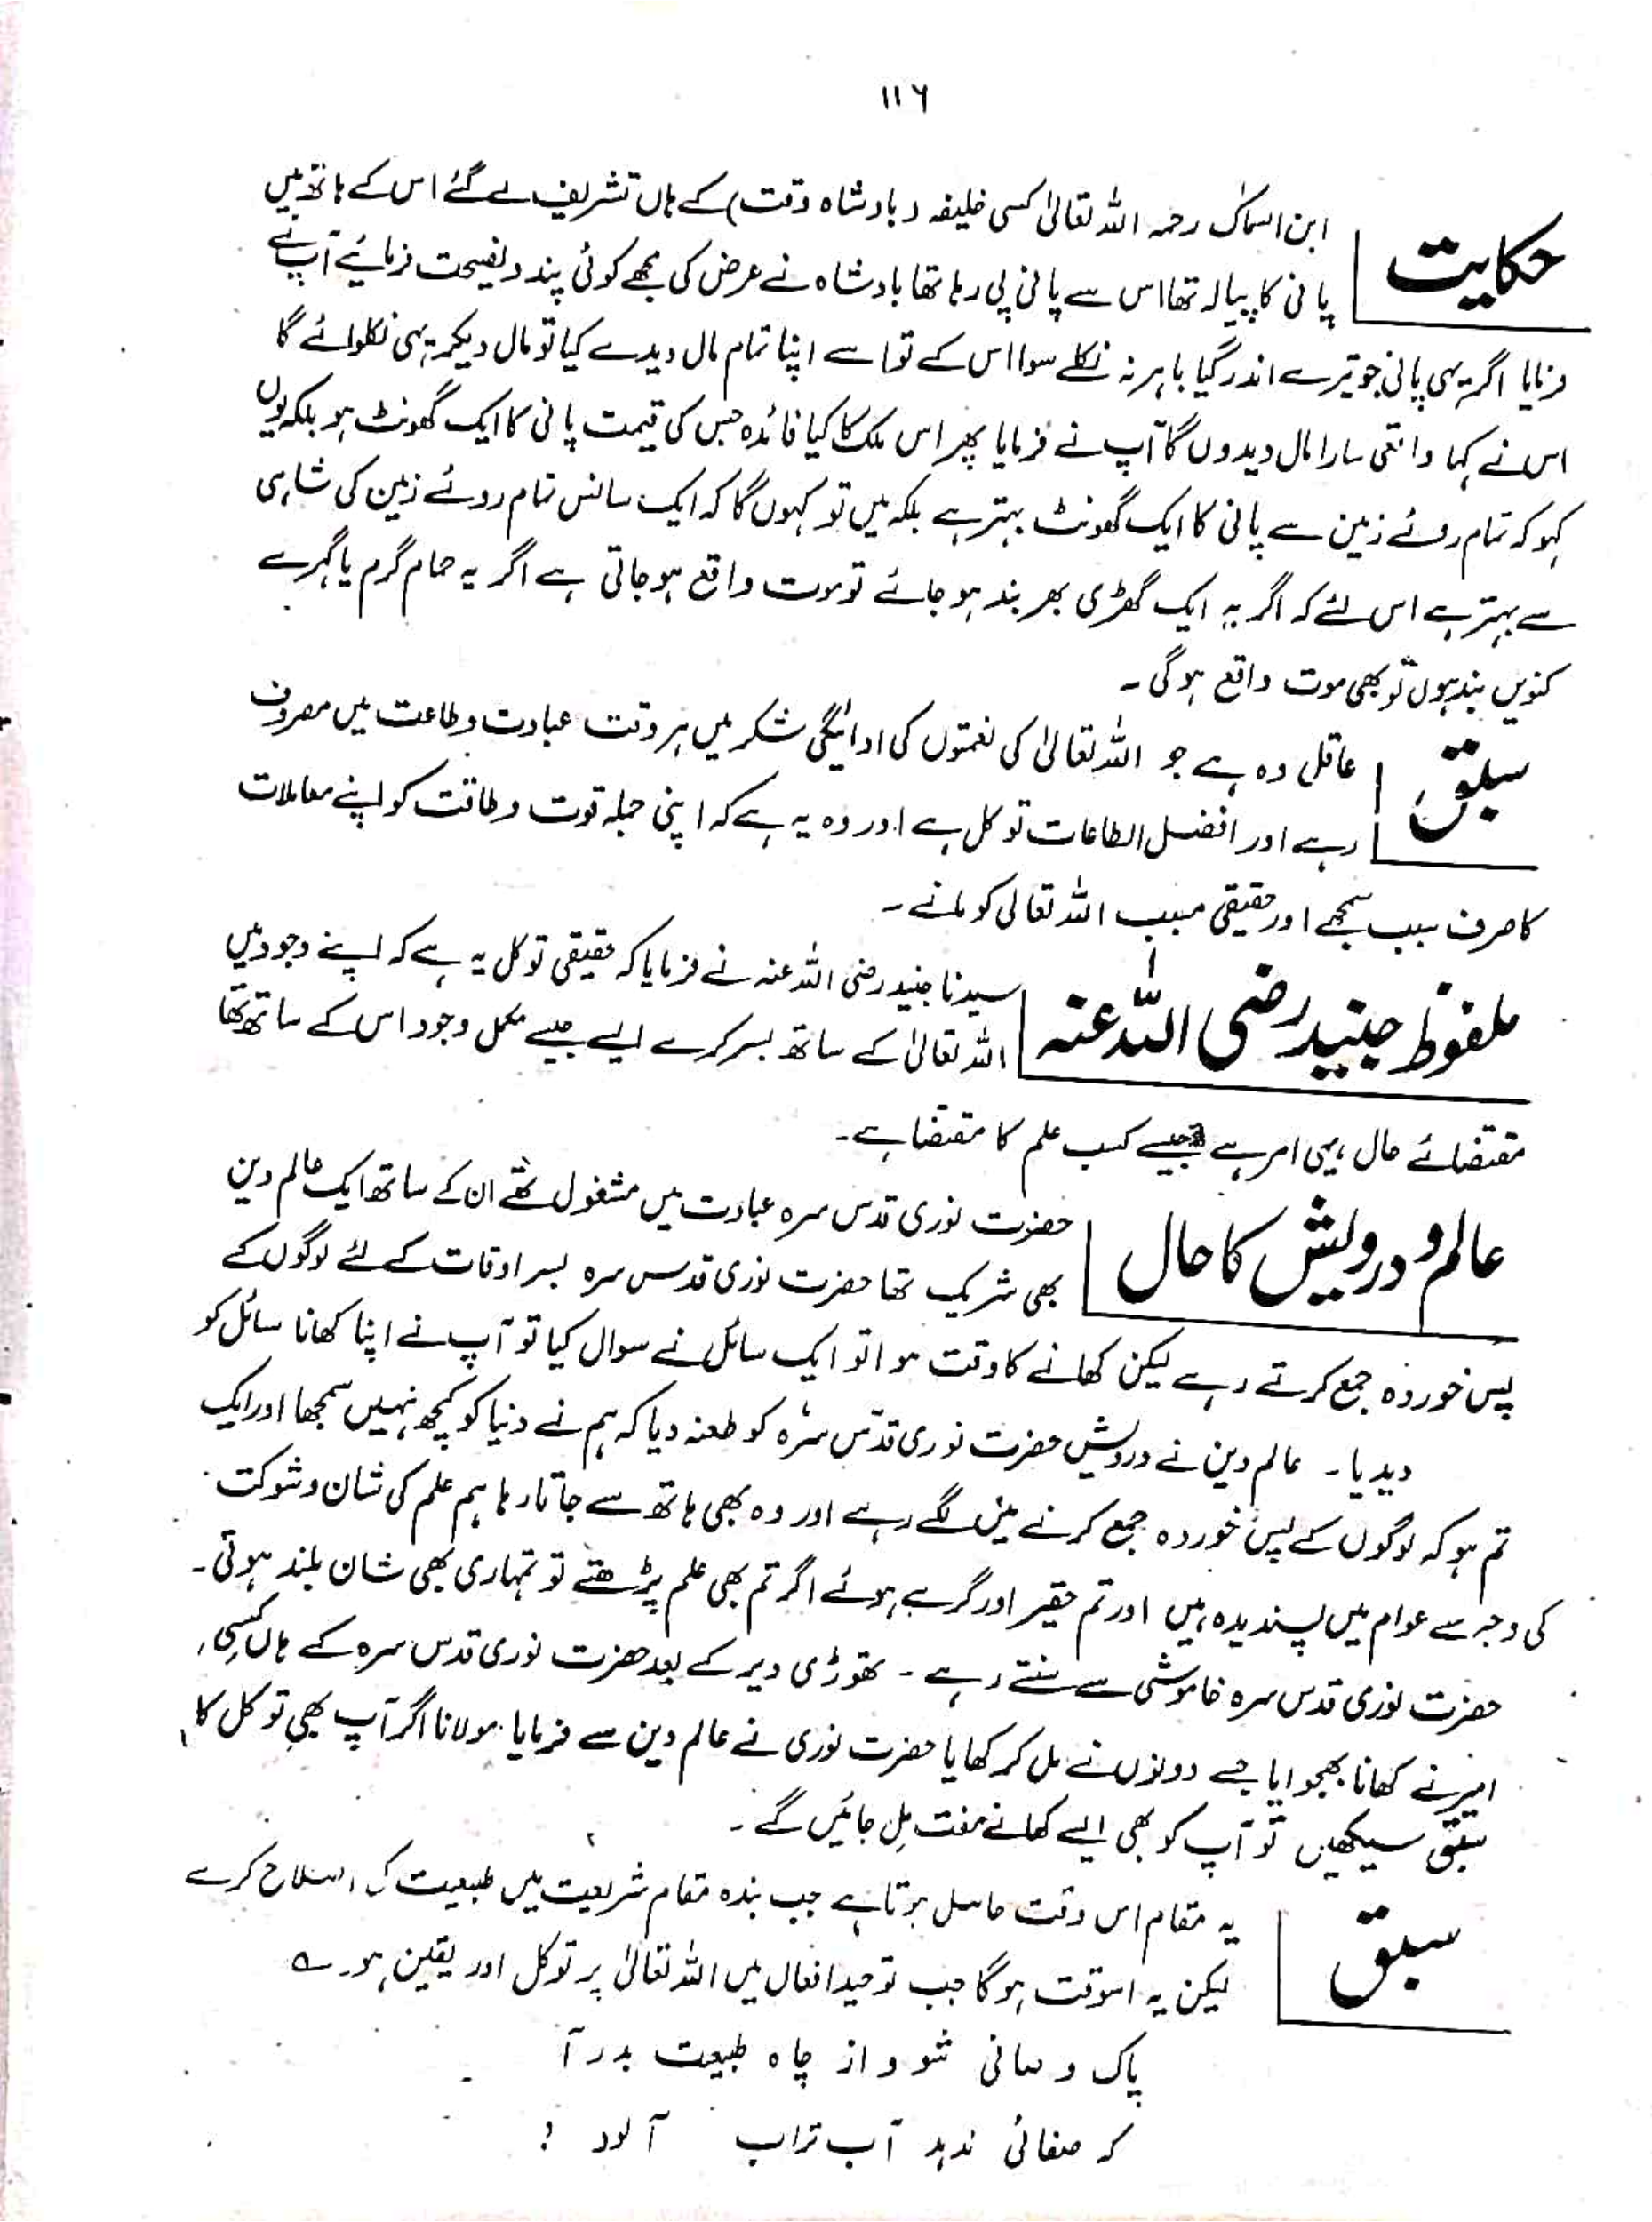 ۱۱۶
حکایت
ابن السماک رحمہ اللہ تعالیٰ کسی خلیفہ (بادشاہ وقت) کے ہاں تشریف لے گئے اس کے ہاتھ میں
پانی کا پیالہ تھا اس سے پانی پی رہا تھا بادشاہ نے عرض کی مجھے کوئی پند و نصیحت فرمائیے آپ نے
فرمایا اگر یہی پانی جو تیرے اندر گیا باہر نہ نکلے سوا اس کے تو اسے اپنا تمام مال دیدے کیا تو مال دیکر یہی نکلوائے گا
اس نے کہا واقعی سارا مال دیدوں گا آپ نے فرمایا پھر اس ملک کا کیا فائدہ جس کی قیمت پانی کا ایک گھونٹ ہو بلکہ یوں
کہو کہ تمام روئے زمین سے پانی کا ایک گھونٹ بہتر ہے بلکہ میں تو کہوں گا کہ ایک سانس تمام روئے زمین کی شاہی
سے بہتر ہے اس لئے کہ اگر یہ ایک گھڑی بھر بند ہو جائے تو موت واقع ہو جاتی ہے اگر یہ حمام گرم یا گہرے
کنویں بند ہوں تو بھی موت واقع ہوگی ۔
سبق
عاقل وہ ہے جو اللہ تعالیٰ کی نعمتوں کی ادائیگی شکر میں ہر وقت عبادت و طاعت میں مصروف
رہے اور افضل الطاعات توکل ہے اور وہ یہ ہے کہ اپنی جملہ قوت و طاقت کو اپنے معاملات
کا صرف سبب سمجھے اور حقیقی مسبب اللہ تعالی کو مانے ۔
ملفوظ جنید رضی اللہ عنہ
سیدنا جنید رضی اللہ عنہ نے فرمایا کہ حقیقی توکل یہ ہے کہ اپنے وجود میں
اللہ تعالیٰ کے ساتھ بسر کرے ایسے جیسے مکمل وجود اس کے ساتھ تھا
مقتضائے حال یہی امر ہے جیسے کسب علم کا مقتضا ہے ۔
عالم و درویش کا حال
حضرت نوری قدس سرہ عبادت میں مشغول تھے ان کے ساتھ ایک عالم دین
بھی شریک تھا حضرت نوری قدس سرہ بسر اوقات کے لئے لوگوں کے
پس خوردہ جمع کرتے رہے لیکن کھانے کا وقت ہوا تو ایک سائل نے سوال کیا تو آپ نے اپنا کھانا سائل کو
دیدیا ۔ عالم دین نے درویش حضرت نوری قدس سرہ کو طعنہ دیا کہ ہم نے دنیا کو کچھ نہیں سمجھا اور ایک
تم ہو کہ لوگوں کے پس خوردہ جمع کرنے میں لگے رہے اور وہ بھی ہاتھ سے جاتا رہا ہم علم کی شان و شوکت
کی وجہ سے عوام میں پسندیدہ ہیں اور تم حقیر اور گرے ہوئے اگر تم بھی علم پڑھتے تو تمہاری بھی شان بلند ہوتی ۔
حضرت نوری قدس سرہ خاموشی سے سنتے رہے ۔ تھوڑی دیر کے بعد حضرت نوری قدس سرہ کے ہاں کسی
امیر نے کھانا بھجوایا جسے دونوں نے مل کر کھایا حضرت نوری نے عالم دین سے فرمایا مولانا اگر آپ بھی توکل کا
سبق سیکھیں تو آپ کو بھی ایسے کھانے مفت مل جائیں گے ۔
سبق
یہ مقام اس وقت حاصل ہوتا ہے جب بندہ مقام شریعت میں طبیعت کی اصلاح کرے
لیکن یہ اسوقت ہوگا جب توحید افعال میں اللہ تعالیٰ پر توکل اور یقین ہو ۔ ؎
پاک و صافی شو و از چاہ طبیعت بدر آ
کہ صفائی ندہد آب تراب آلود ؟